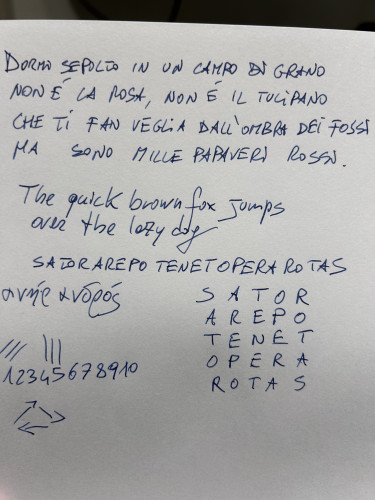 DORMO SEPOLTO IN UN CAMPO DI GRANO
NON È LA ROSA, NON È IL TULIPANO
CHE TI FAN VEGLIA DALL'OMBRA DEI FOSSI
MA SONO MILLE PAPAVERI ROSSI.
The quick brown fox jumps
over the lazy dog
SATORAREPOTENETOPERAROTAS
ἀνήρ ἀνδρός
S A T O R
A R E P O
T E N E T
O P E R A
R O T A S
/// |||
12345678910